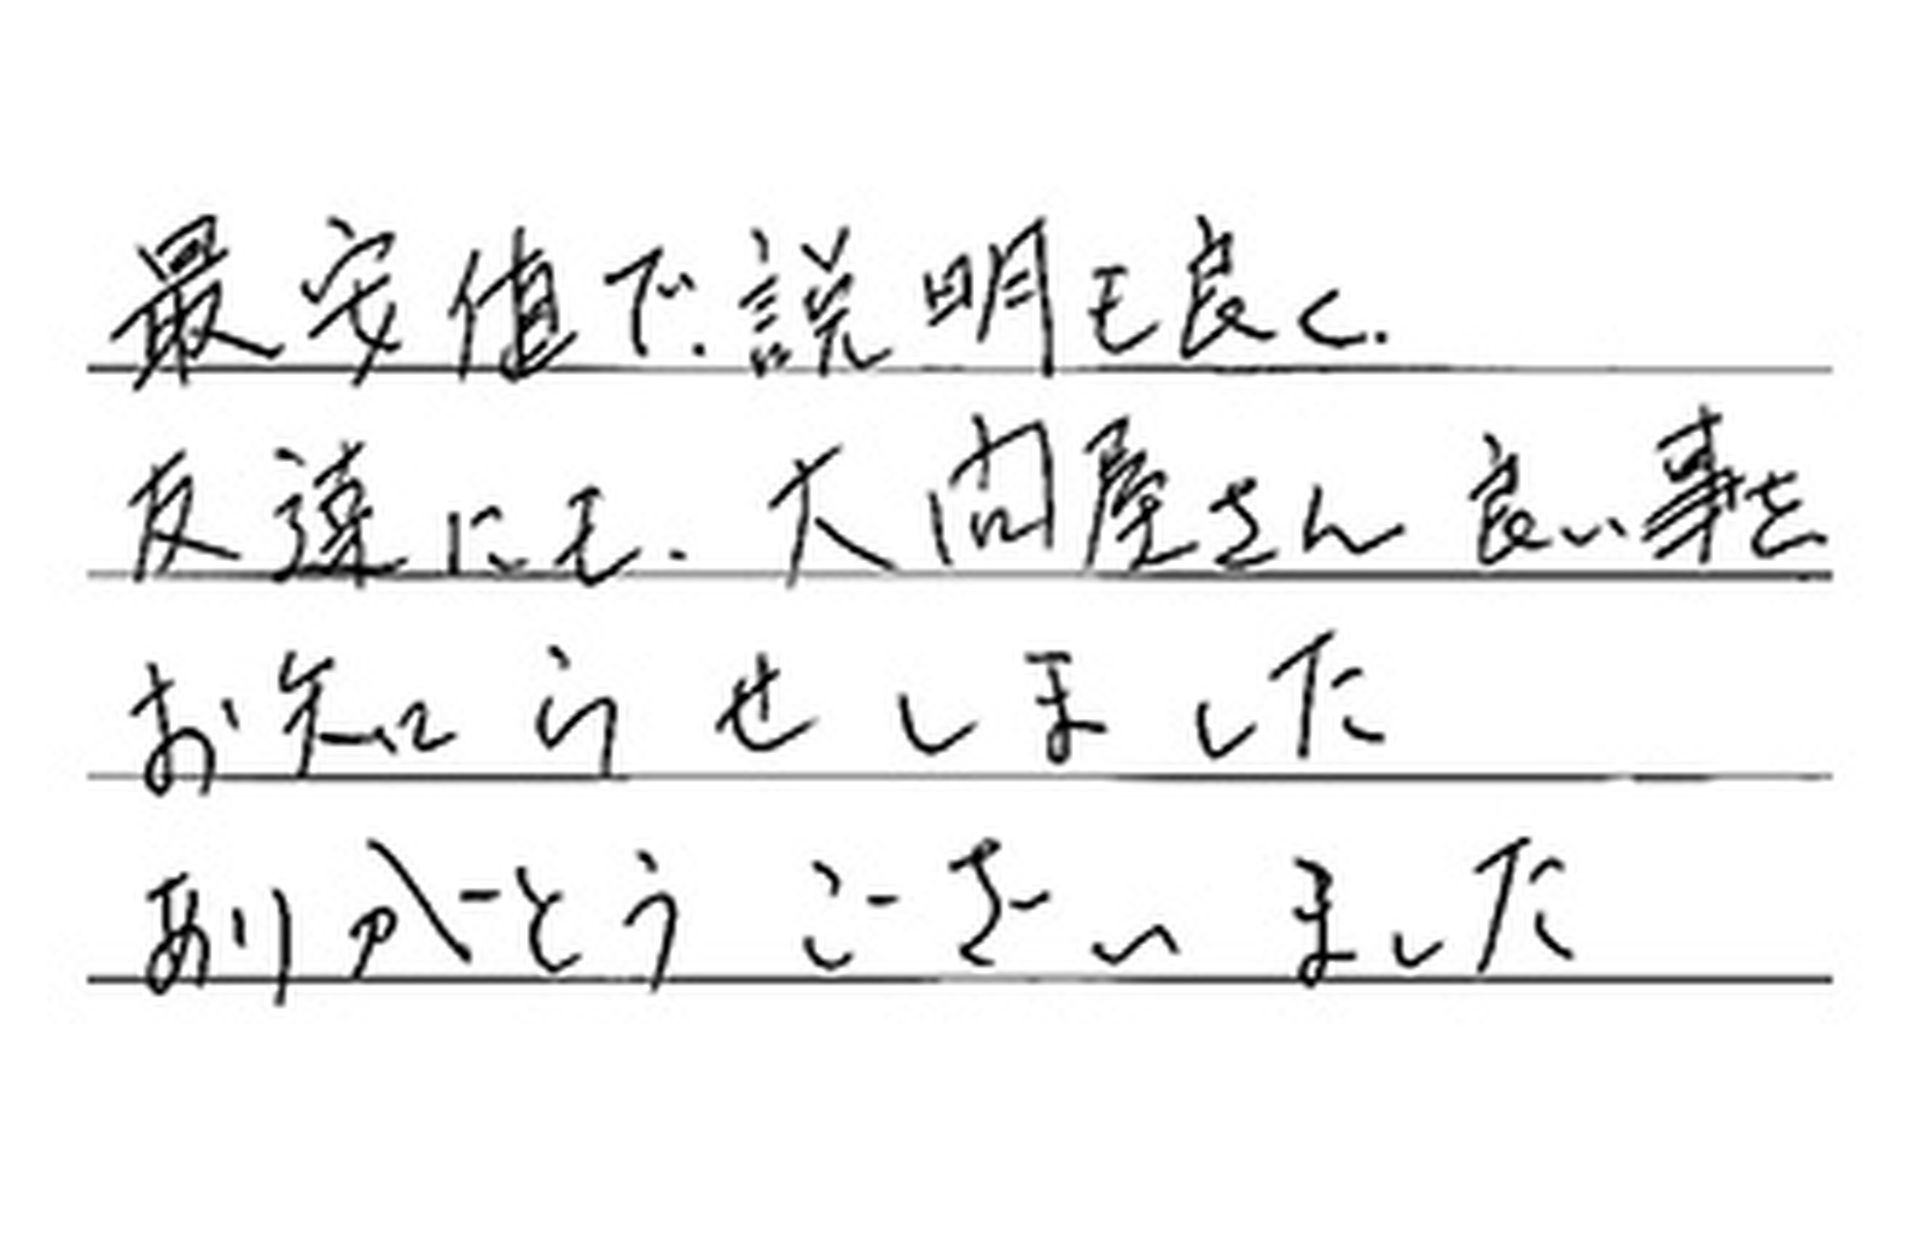 最安値で、説明も良く、
友達にも、大問屋さん良い事を
お知らせしました
ありがとうございました